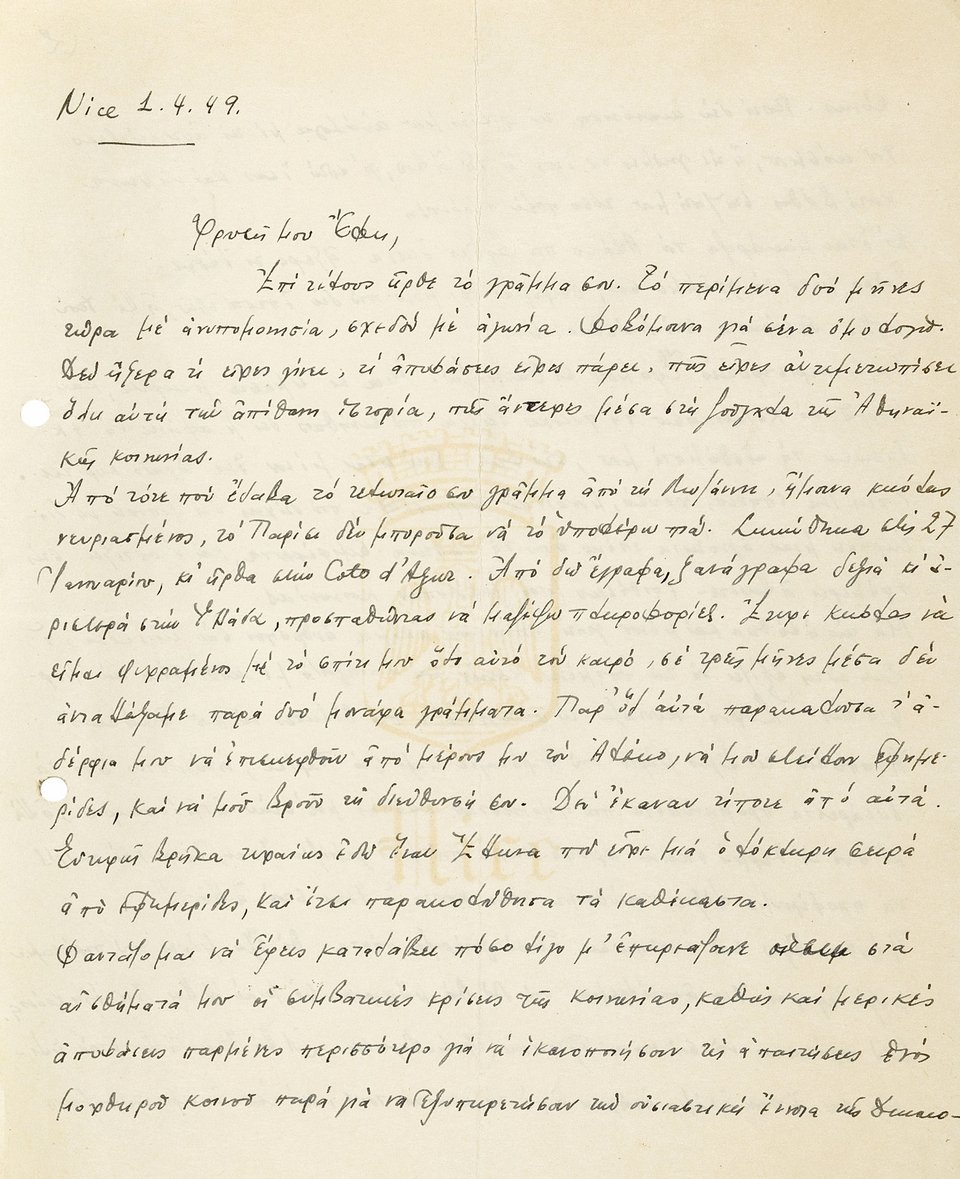 Nice 1.4.49.
Χρυσή μου Ἔφη,
Ἐπί τέλους ἦρθε τό γράμμα σου. Τό περίμενα δυό μῆνες
τώρα μέ ἀνυπομονησία, σχεδόν μέ ἀγωνία. Φοβόμουνα γιά σένα ὁμολογῶ.
Δέν ἤξερα τί εἶχες γίνει, τί ἀποφάσεις εἶχες πάρει, πῶς εἶχες ἀντιμετωπίσει
ὅλη αὐτή τήν ἀπίθανη ἱστορία, πῶς ἄντεχες μέσα στή ζούγκλα τῆς Ἀθηναϊ-
κῆς κοινωνίας.
Ἀπό τότε πού ἔλαβα τό τελευταῖο σου γράμμα ἀπό τή Λωζάννη, ἤμουνα κυρίως
νευριασμένος, τό Παρίσι δέν μποροῦσα νά τό ὑποφέρω πιά. Σηκώθηκα στίς 27
Ἰανουαρίου, κι ἦρθα στήν Côte d'Azur. Ἀπό δῶ ἔγραφα, ξανάγραφα δεξιά κι ἀ-
ριστερά στήν Ἑλλάδα, προσπαθώντας νά μαζέψω πληροφορίες. Ἔτυχε κυρίως νά
εἶμαι ψυχραμένος μέ τό σπίτι μου ὅλο αὐτό τόν καιρό, σέ τρεῖς μῆνες μέσα δέν
ἀνταλλάξαμε παρά δυό μονάχα γράμματα. Παρ' ὅλ' αὐτά παρακαλοῦσα τ' ἀ-
δέρφια μου νά ἐπισκεφθοῦν ἀπό μέρους μου τόν Ἀλέκο, νά μοῦ στείλουν ἐφημε-
ρίδες, καί νά μοῦ βροῦν τή διεύθυνσή σου. Δέν ἔκαναν τίποτε ἀπό αὐτά.
Εὐτυχῶς βρῆκα τυχαίως ἐδῶ ἕναν Ἕλληνα πού εἶχε μιά ὁλόκληρη σειρά
ἀπό ἐφημερίδες, καί ἔτσι παρακολούθησα τά καθέκαστα.
Φαντάζομαι νά ἔχεις καταλάβει πόσο λίγο μ' ἐπηρεάζουνε στά
αἰσθήματά μου οἱ συμβατικές κρίσεις τῆς κοινωνίας, καθώς καί μερικές
ἀποφάσεις παρμένες περισσότερο γιά νά ἱκανοποιήσουν τίς ἀπαιτήσεις ἑνός
μοχθηροῦ κοινοῦ παρά γιά νά ἐξυπηρετήσουν τήν οὐσιαστική ἔννοια τῆς δικαιο-